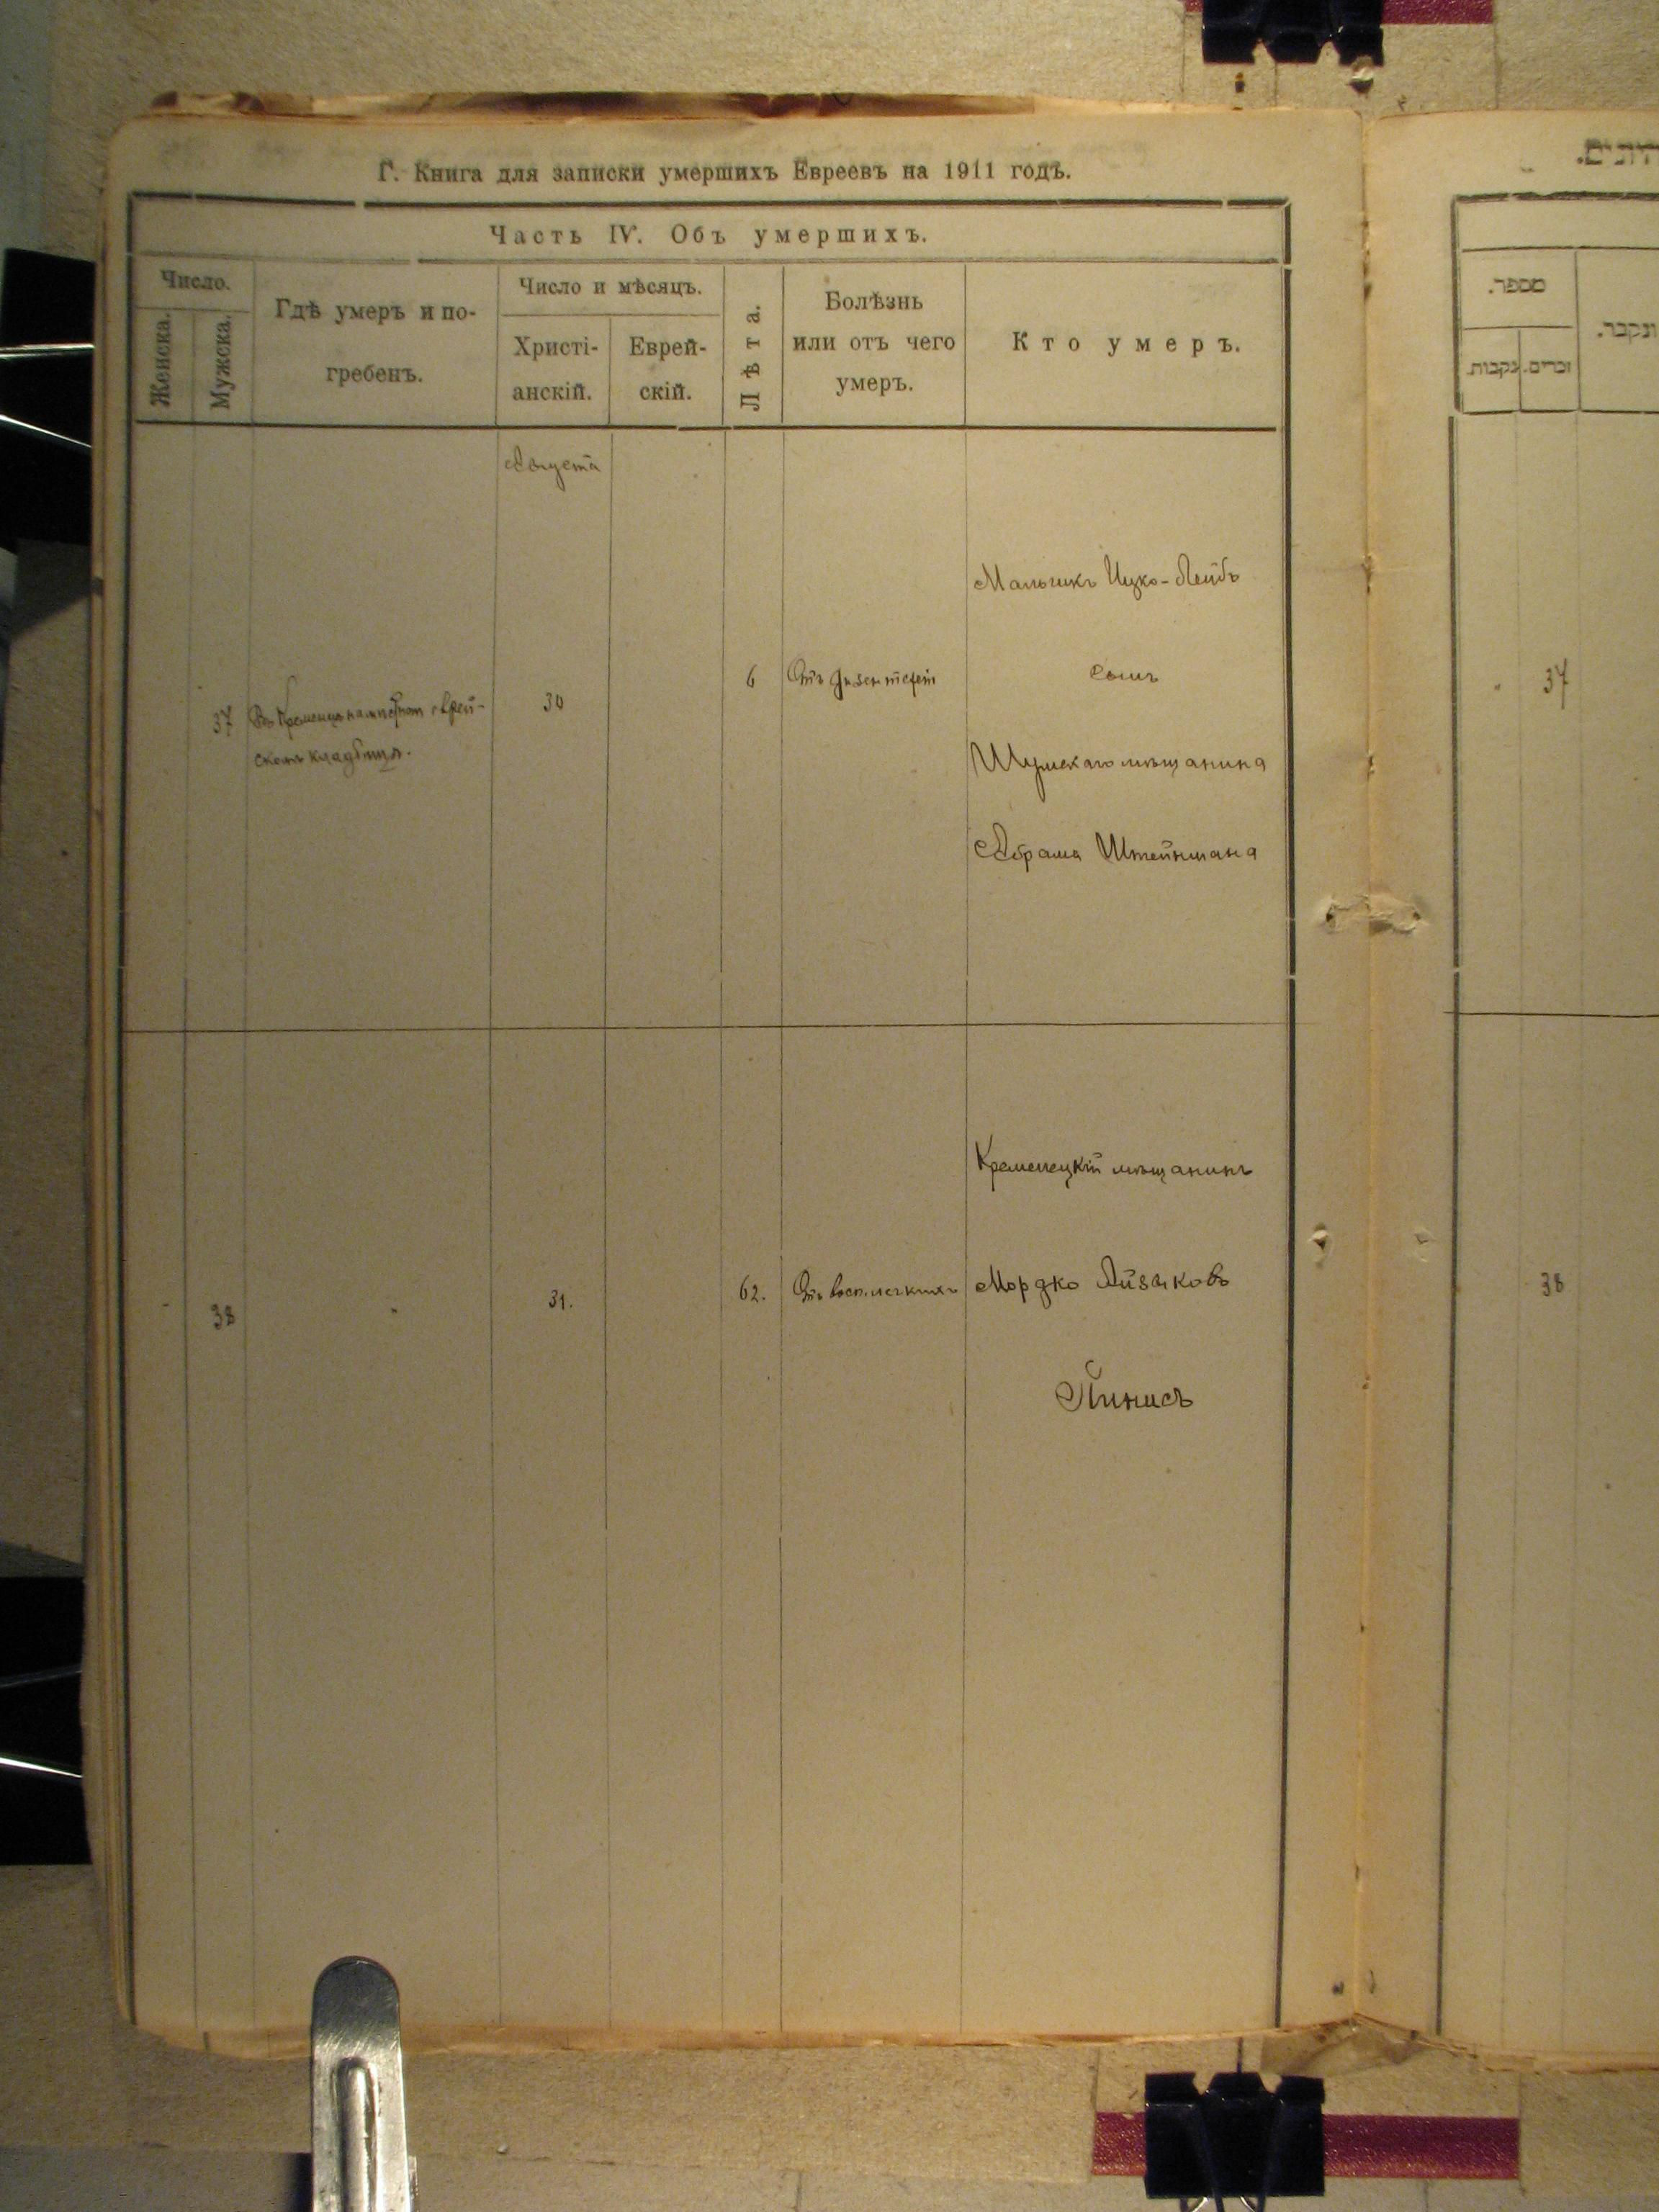 Г. Книга для записки умершихъ Евреевъ на 1911 годъ.
Часть IV. Объ умершихъ.
Число.
Женска.
Мужска.
Гдѣ умеръ и по-
гребенъ.
Число и мѣсяцъ.
Христі-
анскій.
Еврей-
скій.
Лѣта.
Болѣзнь
или отъ чего
умеръ.
Кто умеръ.
Августа
Мальчикъ Ицко-Лейбъ
сынъ
37
Въ Кременцѣ на местном еврей-
скомъ кладбищѣ.
30
6
Отъ дизентеріи
Шумскаго мѣщанина
Абрама Штейнмана
Кременецкій мѣщанинъ
38
"
31.
62.
Отъ восп. легкихъ
Мордко Айзиковъ
Пинисъ
מספר.
זכרים.
נקבות.
ונקבר.
37
38